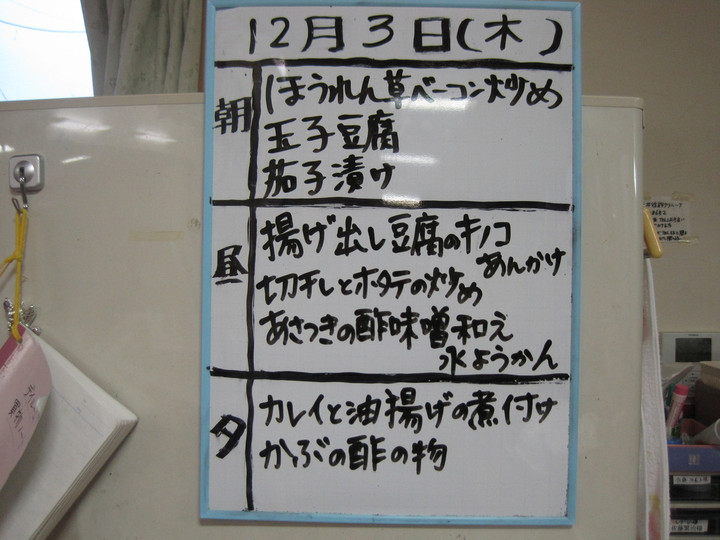 12月3日(木)
朝
ほうれん草ベーコン炒め
玉子豆腐
茄子漬け
昼
揚げ出し豆腐のキノコ
あんかけ
切干しとホタテの炒め
あさつきの酢味噌和え
水ようかん
夕
カレイと油揚げの煮付け
かぶの酢の物